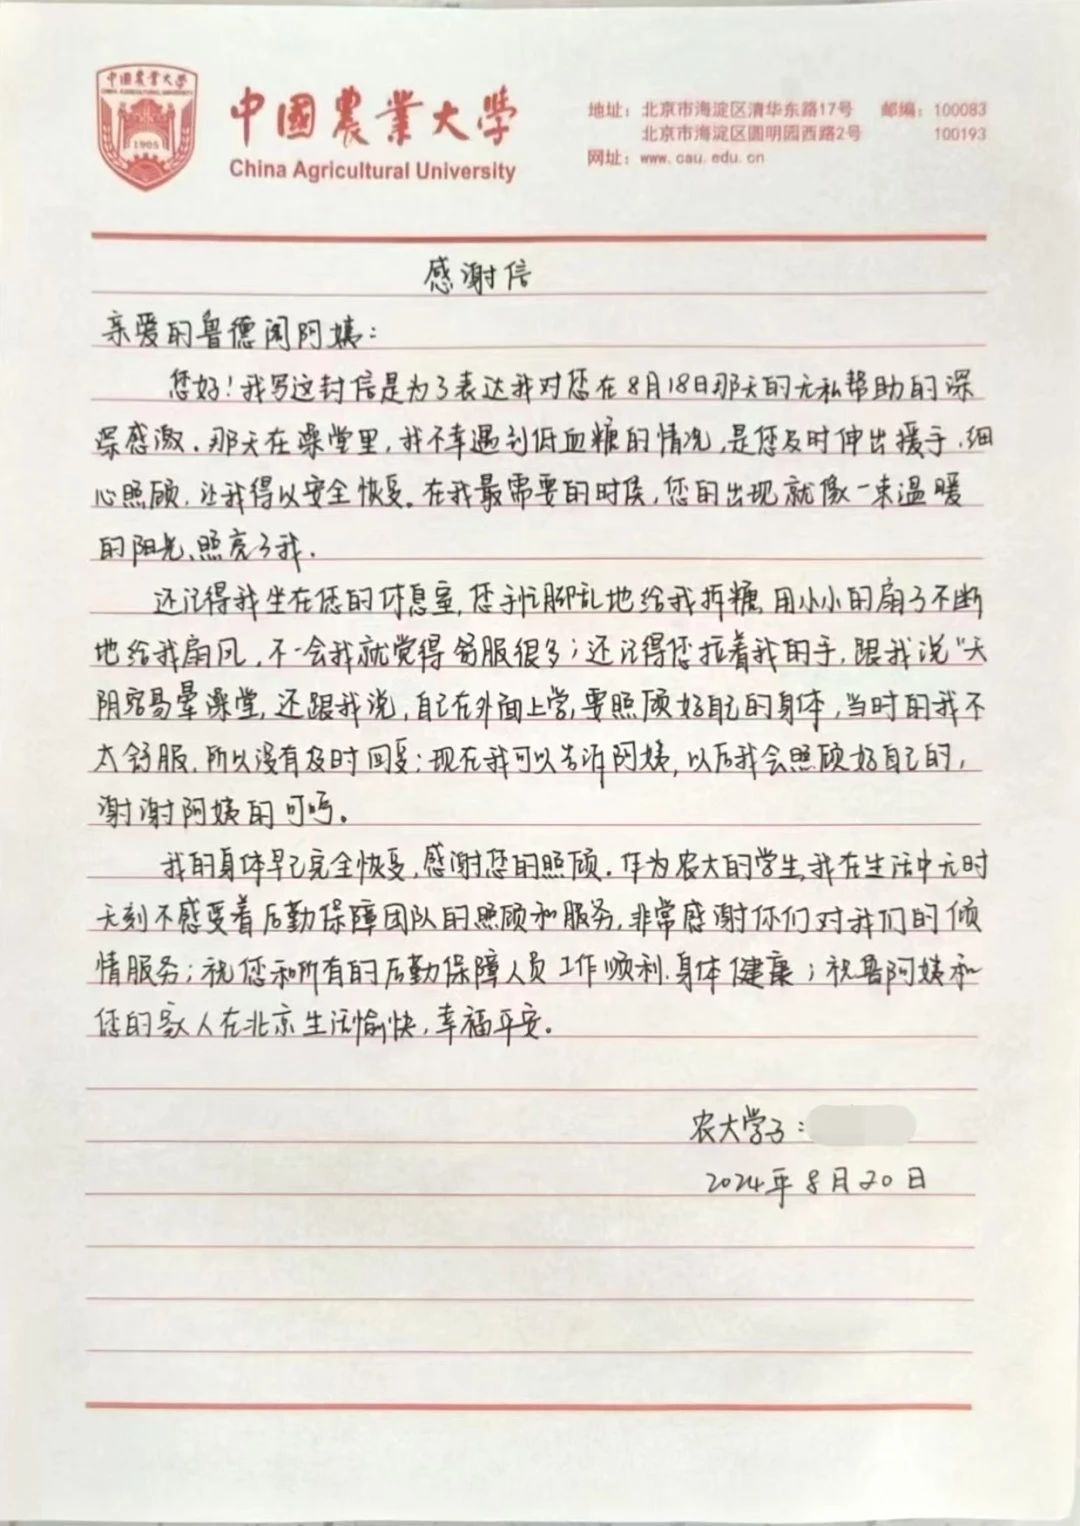 中国农业大学
CHINA AGRICULTURAL UNIVERSITY
1905
中国農業大学
China Agricultural University
地址：北京市海淀区清华东路17号 邮编：100083
北京市海淀区圆明园西路2号 100193
网址：www.cau.edu.cn
感谢信
亲爱的鲁德阁阿姨：
您好！我写这封信是为了表达我对您在8月18日那天的无私帮助的深
深感激。那天在澡堂里，我不幸遇到低血糖的情况，是您及时伸出援手，细
心照顾，让我得以安全恢复。在我最需要的时侯，您的出现就像一束温暖
的阳光，照亮了我。
还记得我坐在您的休息室，您手忙脚乱地给我拆糖，用小小的扇子不断
地给我扇风，不一会我就觉得舒服很多；还记得您拉着我的手，跟我说“天
阴容易晕澡堂，还跟我说，自己在外面上学，要照顾好自己的身体，当时的我不
太舒服，所以没有及时回复；现在我可以告诉阿姨，以后我会照顾好自己的，
谢谢阿姨的叮嘱。
我的身体早已完全恢复，感谢您的照顾。作为农大的学生，我在生活中无时
无刻不感受着后勤保障团队的照顾和服务，非常感谢你们对我们的倾
情服务；祝您和所有的后勤保障人员工作顺利，身体健康；祝鲁阿姨和
您的家人在北京生活愉快，幸福平安。
农大学子：
2024年8月20日